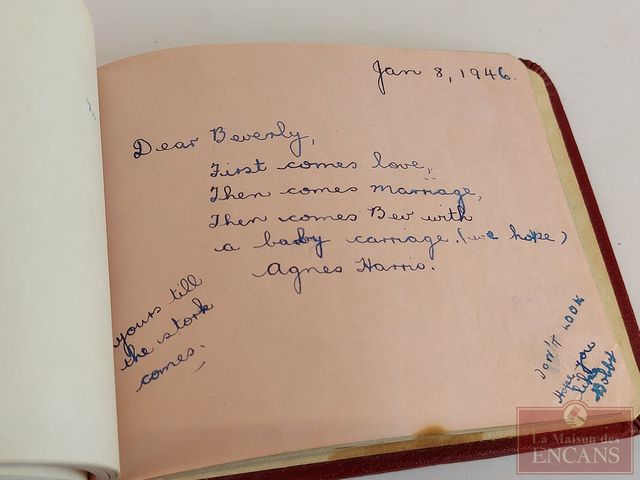 Jan 8, 1946.
Dear Beverly,
First comes love,
Then comes marriage,
Then comes Bev with
a baby carriage. (we hope)
Agnes Harris.
yours till
the stork
comes.
DON'T LOOK
Hope you
like
La Maison des
ENCANS